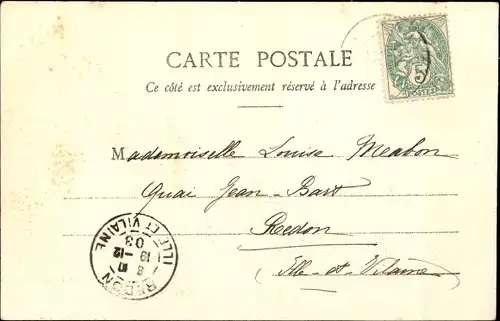 CARTE POSTALE
Ce côté est exclusivement réservé à l'adresse
5
POSTES
Mademoiselle Louise Meabon
Quai Jean-Bart
Redon
(Ille-et-Vilaine)
REDON
ILLE ET VILAINE
19 -12
03